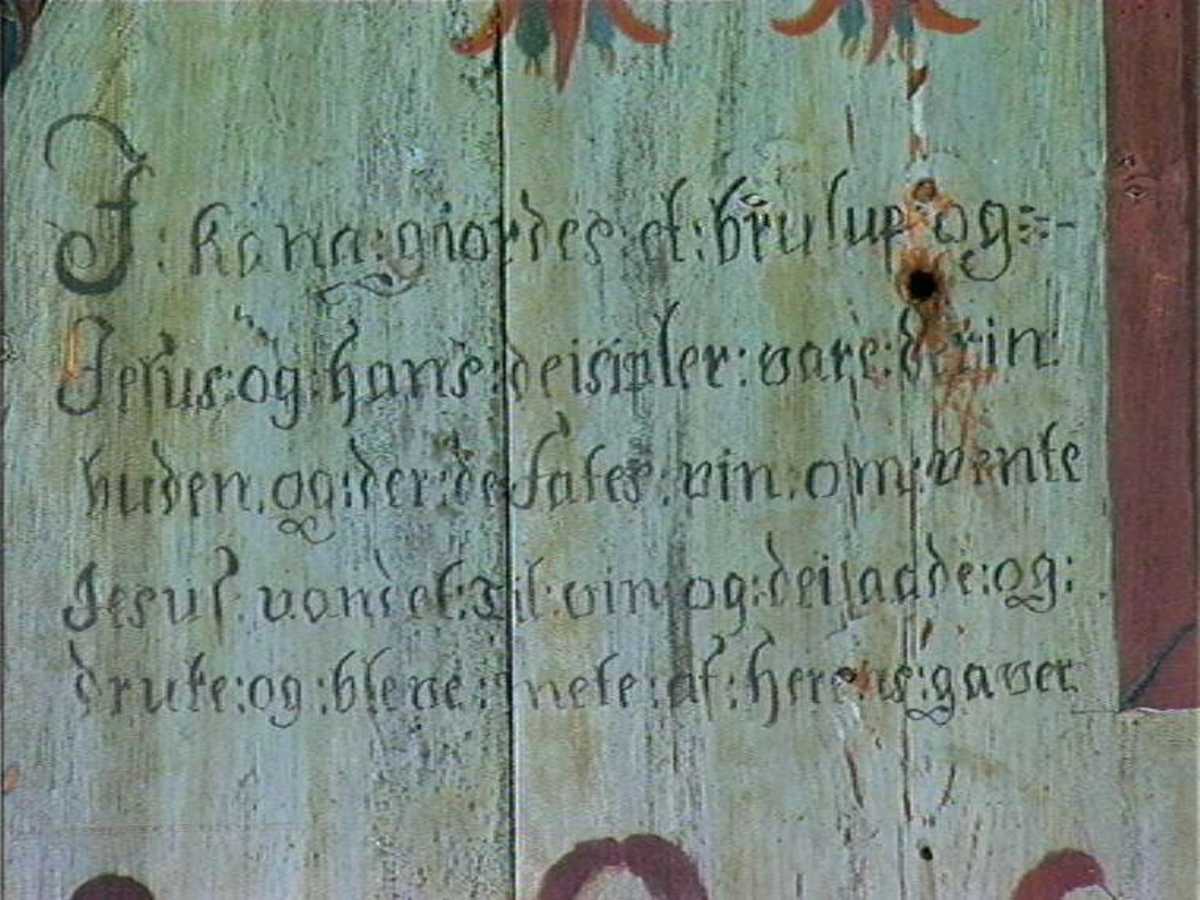 I: kana: giordes: et: brulup og÷-
Jesus: og: hans: deisipler: vare: der in:
buden, og: der: de fates: vin. om: vente
Jesus. vandet: Til: vin og: dei aade: og:
druke: og: bleve: mete: af: herens: gaver